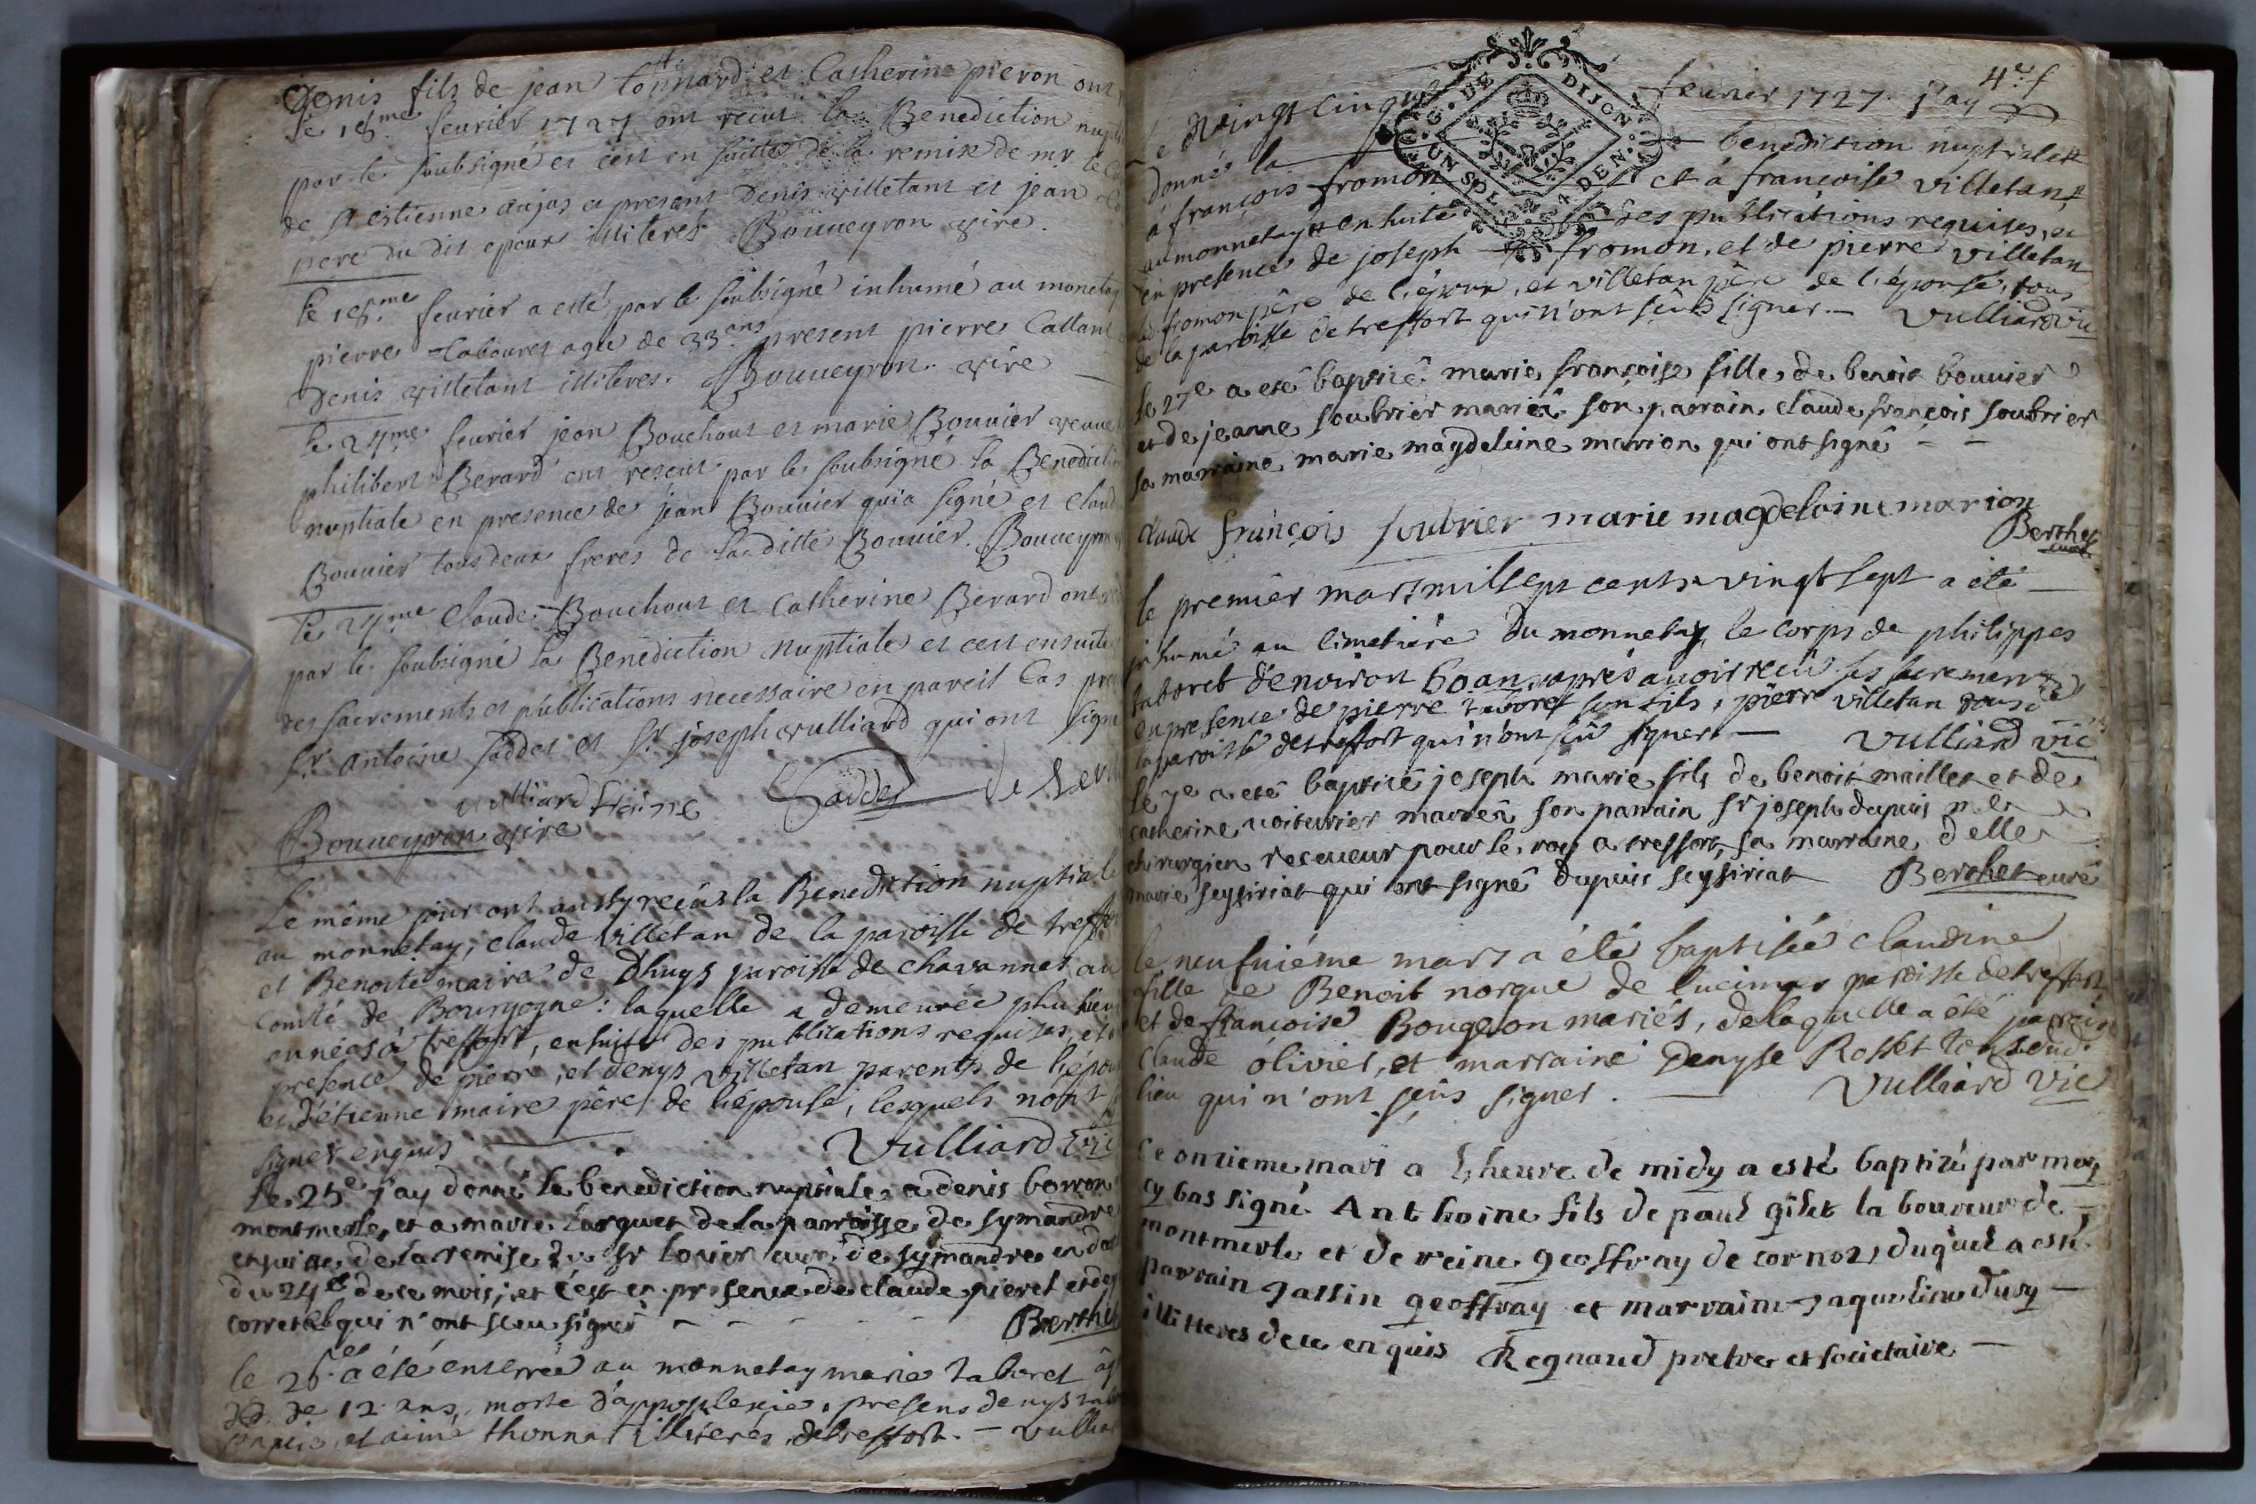 Denis fils de jean tonnard et Catherine pieron ont
le 18me feurier 1727 ont receu la Benediction nupti
par le soubsigné et c'est en suitte de la remise de mr le
de st estienne et present Denis villetant et jean
pere du dit epoux illiteres Bouueyron vire
le 18me feurier a esté par le soubsigné inhumé au monetay
pierre Tabouret agé de 33 ans present pierre
Denis villetant illiteres. Bouueyron vire
le 24me feurier jean Bouchout et marie Bouuier veuue
philibert Berard ont receut par le soubsigné la Benedicti
nuptiale en presence de jean Bouuier qui a signé et claud
Bouuier tous deux freres de la ditte Bouuier. Bouueyron
le 24me Claude Bouchout et Catherine Berard ont
par le soubsigné la Benediction Nuptiale et c'est ensuite
des sacrements et publications necessaire en pareil Cas pre
sr antoine saddet et sr joseph vulliard qui ont signe
vulliard Saddet
Bouueyron vire
Le même jour ont aussy reçûs la Benediction nuptiale
au monnetay, claude villetan de la paroisse de treffo
et Benoite maire de Dhuys paroisse de chavannes au
Comté de Bourgogne: laquelle a demeurée plusieu
années à treffort, ensuite des publications requises, et
presence de pierre, et denys villetan parents de l'épou
et d'étienne maire père de l'épouse, lesquels n'ont
signer enquis Vulliard vic
Le 25e j'ay donné la benediction nuptiale a denis borron
montmerle, et a marie Larguet de la parroisse de symandre
ensuitte de la remise du sr curé de symandre en dat
du 24e de ce mois; et c'est en presence de claude pieret et de
corretet qui n'ont sceu signer Berthet
le 26e a été enterrée au monnetay marie taboret âg
de 12 ans, morte d'appoplexie, presens denys
son pere, et aimé thonnat illiterés, de treffort. - Vulliar
4e f
DE DIJON
G. DE
UN SOL 4 DEN.
le vingt cinq feurier 1727 j'ay
donné la benediction nuptiale
à françois fromon et à françoise villetan
au monnetay ensuite des publications requises, et
en presence de joseph fromon, et de pierre villetan
fromon père de l'époux, et villetan père de l'épouse, tous
de la paroisse de treffort qui n'ont sçûs signer. - Vulliard vic
le 27e a eté baptizé marie françoise fille de benoit bouuier
et de jeanne soubrier mariés son parrain claude françois soubrier
sa marraine marie magdeleine marion qui ont signé
claude françois soubrier marie magdeloine marion
Berthet curé
le premier mars mil sept cents vingt sept a été
inhumé au cimetière du monnetay le corps de philippes
taboret d'enuiron 60 ans, après auoir reçû les sacremens
en presence de pierre taboret son fils, pierre villetan tous de
la paroisse de treffort qui n'ont sçû signer. - Vulliard vic
Le 7e a eté baptizé joseph marie fils de benoit maillet et de
catherine voiturier mariés son parrain sr joseph dupuis me
chirurgien receueur pour le roy a treffort, sa marraine delle
marie seysiriat qui ont signé dupuis seysiriat Berthet curé
le neufuiéme mars a été baptisée claudine
fille de Benoit norgue de lucinar paroisse de treffort
et de françoise Bougeon mariés, de laquelle a été parrain
claude oliviet, et marraine denyse Rosset tous dud.
lieu qui n'ont sçûs signer. Vulliard vic
Ce onzieme mars a L'heure de midy a esté baptizé par moy
cy bas signé. Anthoine fils de paul gilet laboureur de
montmerle et de reine geoffray de cornoz, duquel a esté
parrain jassin geoffray et marraine jaqueline dusy
illitteres de ce enquis Regnaud prebtre et societaire